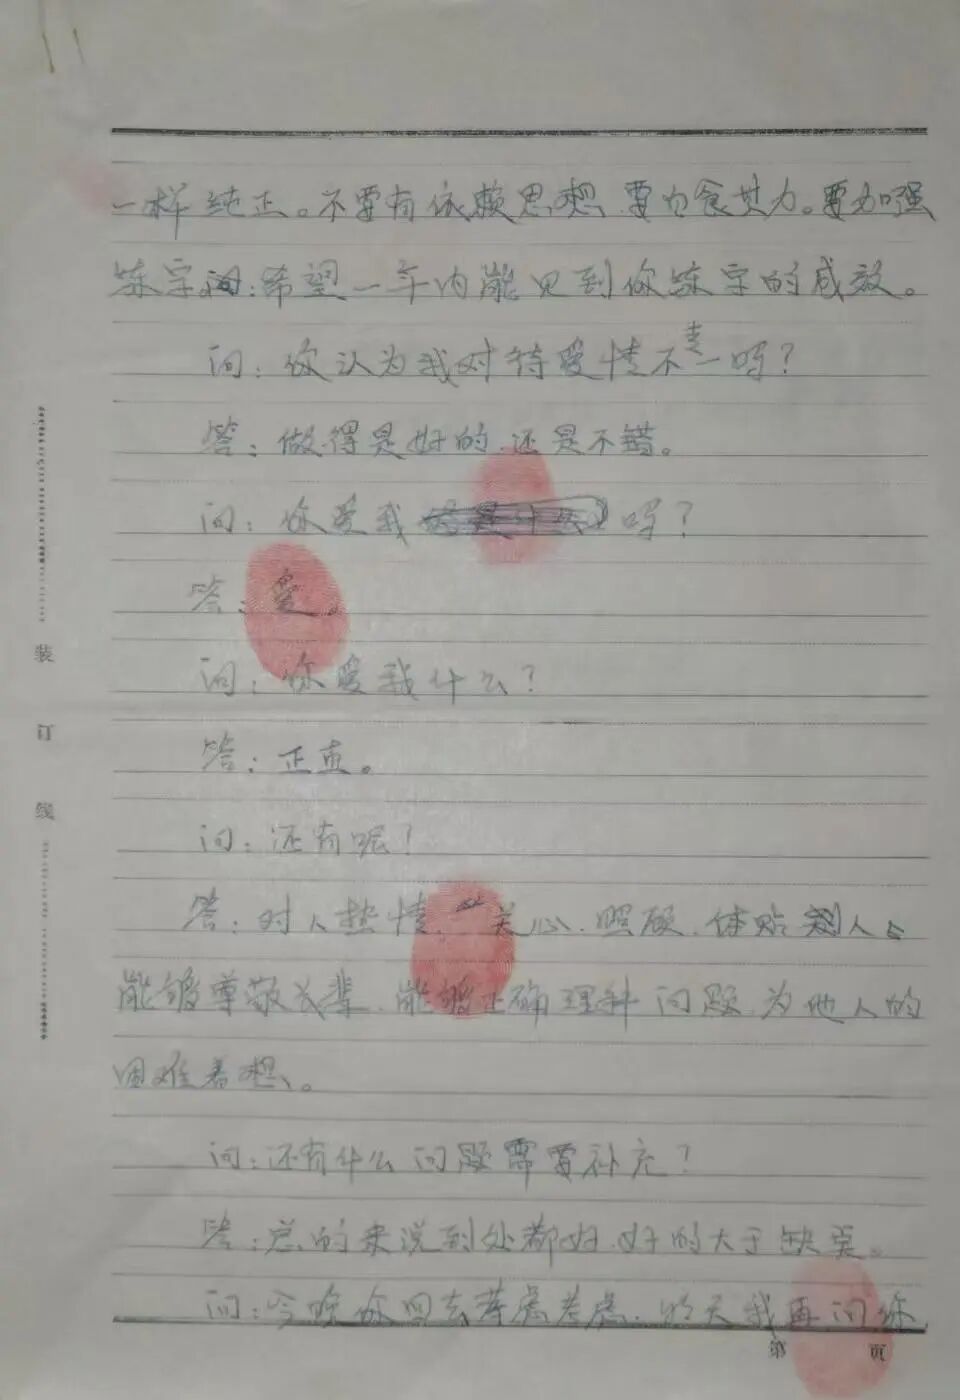 一样纯正。不要有依赖思想,要自食其力。要加强
练字,问:希望一年内能见到你练字的成效。
问:你认为我对待爱情不专一吗?
答:做得是好的,还是不错。
问:你爱我吗?
答:爱。
问:你爱我什么?
答:正直。
问:还有呢?
答:对人热情,关心、照顾、体贴别人,
能够尊敬长辈,能够正确理解问题,为他人的
困难着想。
问:还有什么问题需要补充?
答:总的来说到处都好,好的大于缺点。
问:今晚你回去考虑考虑,明天我再问你
装
订
线
第 页